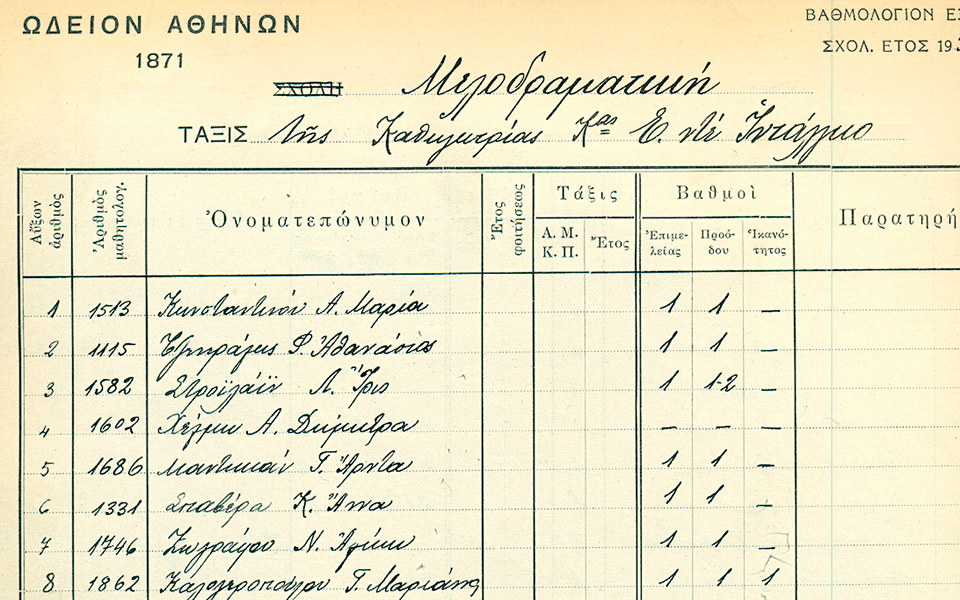 ΩΔΕΙΟΝ ΑΘΗΝΩΝ
1871
ΒΑΘΜΟΛΟΓΙΟΝ
ΣΧΟΛ. ΕΤΟΣ 19
ΣΧΟΛΗ Μελοδραματική
ΤΑΞΙΣ τῆς Καθηγητρίας Κας Ε. ντέ Ἱντάλγκο
Αὔξων ἀριθμὸς
Ἀριθμὸς μαθητολογ.
Ὀνοματεπώνυμον
Ἔτος φοιτήσεως
Τάξις
Α. Μ. Κ. Π.
Ἔτος
Βαθμοὶ
Ἐπιμελείας
Προόδου
Ἱκανότητος
Παρατηρή
1 1513 Κωνσταντίνου Α. Μαρία 1 1 –
2 1115 Φ. Ἀθανάσιος 1 1 –
3 1582 Λ. Ἴρις 1 1-2 –
4 1602 Χέλμη Α. Δήμητρα – – –
5 1686 Μαντικιάν Γ. Ἄρντα 1 1 –
6 1331 Κ. Ἄννα 1 1 –
7 1746 Ζωγράφου Ν. Ἀλίκη 1 1 –
8 1862 Καλογεροπούλου Γ. Μαριάννα 1 1 1